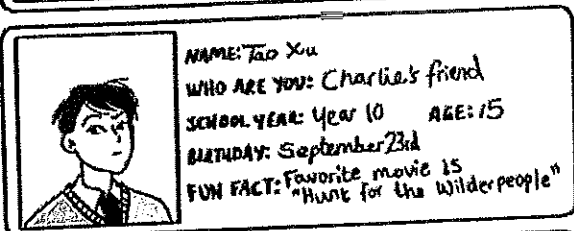 NAME: Tao Xu
WHO ARE YOU: Charlie's friend
SCHOOL YEAR: Year 10 AGE: 15
BIRTHDAY: September 23rd
FUN FACT: Favorite movie is
"Hunt for the Wilderpeople"